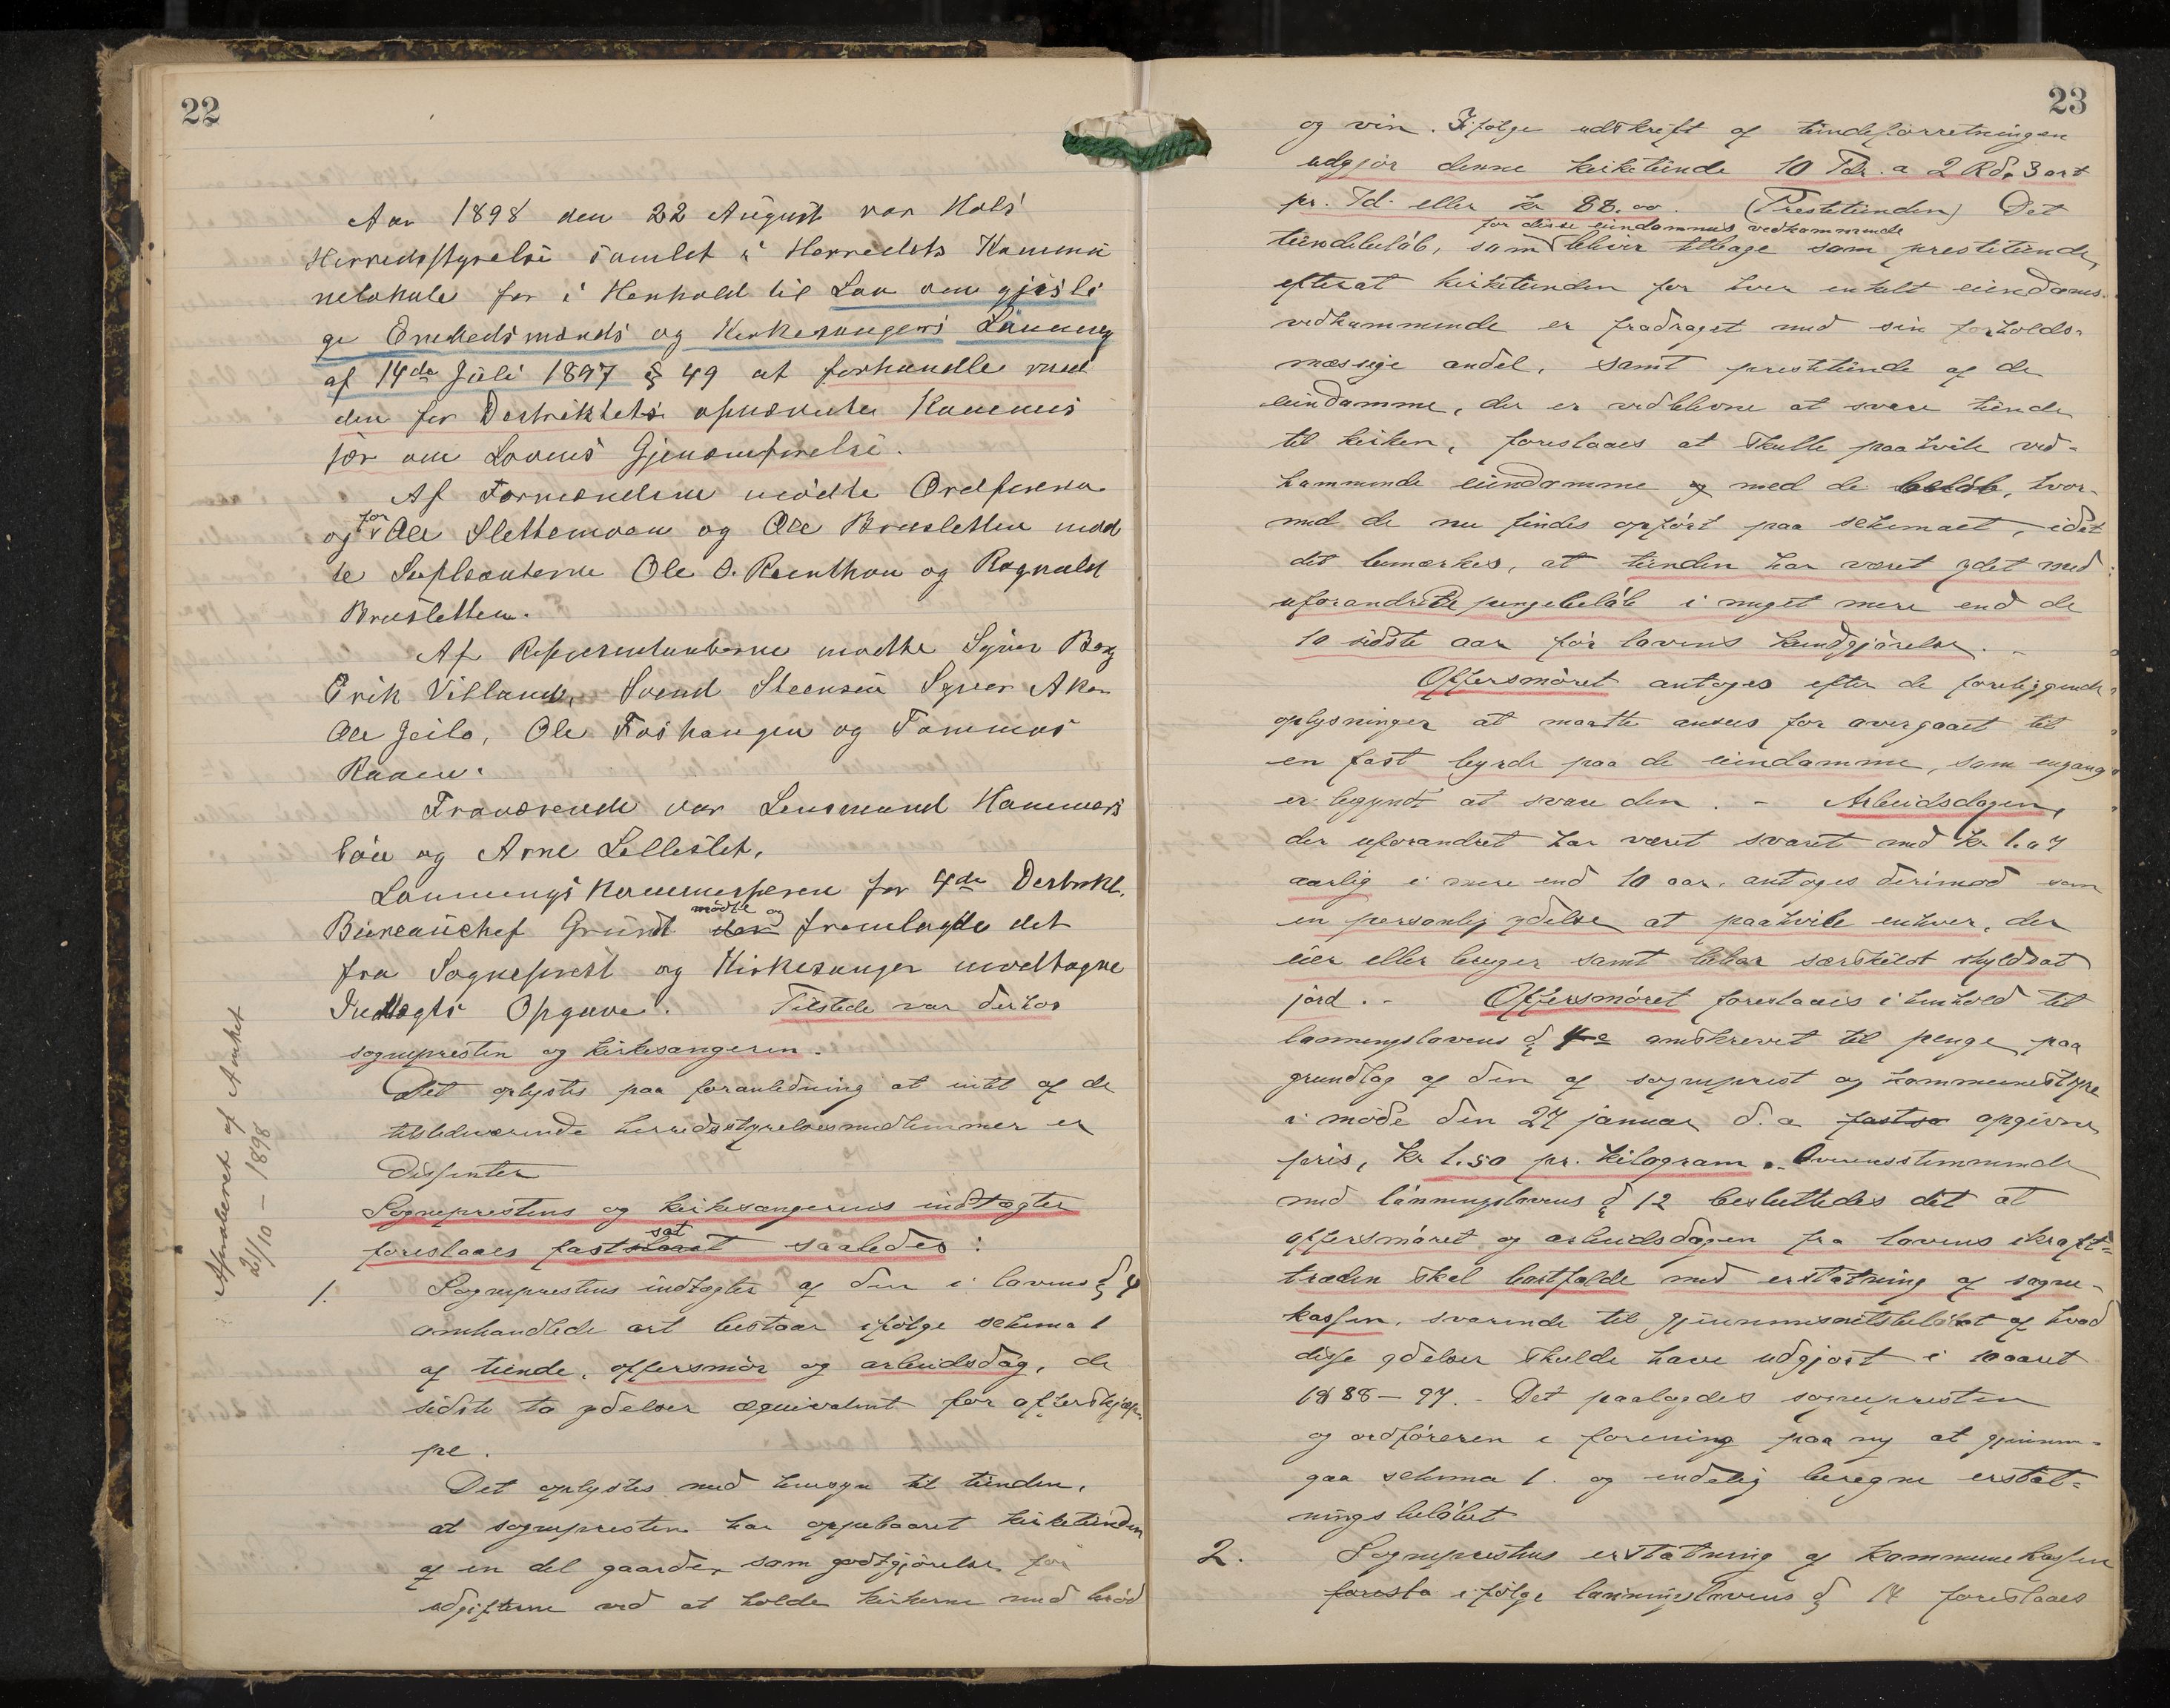 22
Aar 1898 den 22 August var Hols
Herredsstyrelse samlet i Herredets Kommu
nelokale for i Henhold til Lov om gjistli
ge Embedsmænds og Kirkesangeres Lønning
af 14de Juli 1897 § 49 at forhandle med
den for Destriktets opnævnte Kommis
jær om Lovens Gjenemførelse.
Af Formændene mødte Ordføreren
og for Ole Slettemoen og Ole Brusletten mød
te Supleanterne Ole O. Reinthon og Ragnvald
Brusletten.
Af Repræsentanterne mødte Syver Berg
Erik Villand, Svend Steensen Syver Aker
Ole Jeilo, Ole Foshaugen og Tommas
Raaen.
Fraværende var Lensmand Hammers
bøen og Arne Lilleslet.
Lønnings Kommisjæren for 4de Destrikt.
Bureauchef Grundt mødte og fremlagde det
fra Sogneprest og Kirkesanger modtagne
Indtægts Opgave. Tilstede var derhos
sognepresten og kirkesangeren.
Det oplystes paa foranledning at intet af de
tilstedeværende herredsstyrelsesmedlemmer er
Dissenter
Sogneprestens og kirkesangerens indtægter
foreslaaes fastslaat sat saaledes:
1. Sogneprestens indtægter af den i lovens § 4
omhandlede art bestaar ifølge schema 1
af tiende, offersmør og arbeidsdag, de
sidste to ydelser æquivalent for afterskjep-
pe.
Det oplystes med hensyn til tienden,
at sognepresten har oppebaaret kirketienden
af en del gaarder som godtgjørelse for
udgifterne ved at holde kirkerne med brød
Aprobéret af Amtet
21/10 – 1898
23
og vin. Ifølge udskrift af tiendeforretningen
udgjør denne kirketiende 10 Tdr. a 2 Rd. 3 ort
pr. Td. eller kr 88.00. (Prestetienden) Det
for disse eiendommes vedkommende
tiendebeløb, som bliver tilbage som prestetiende,
efterat kirketienden for hver enkelt eiendoms
vedkommende er fradraget med sin forholds-
mæssige andel, samt prestetiende af de
eiendomme, der er vedblevne at svare tiende
til kirken, foreslaaes at skulle paahvile ved-
kommende eiendomme og med de beløb, hvor-
med de nu findes opført paa schemaet, idet
det bemærkes, at tienden har været ydet med
uforandrede pengebeløb i meget mere end de
10 sidste aar før lovens kundgjørelse. –
Offersmøret antoges efter de foreliggende
oplysninger at maatte ansees for overgaaet til
en fast byrde paa de eiendomme, som engang
er begyndt at svare den. – Arbeidsdagen,
der uforandret har været svaret med kr. 1.07
aarlig i mere end 10 aar, antoges derimod som
en personlig ydelse at paahvile enhver, der
eier eller bruger samt bebor særskilt skyldsat
jord. – Offersmøret foreslaaes i henhold til
lønningslovens § omskrevet til penge paa
grundlag af den af sogneprest og kommunestyre
i møde den 27 januar d. a. fastsa opgivne
pris, kr 1.50 pr. kilogram. – Overensstemmende
med lønningslovens § 12 besluttedes det at
offersmøret og arbeidsdagen fra lovens ikraft=
træden skal bortfalde med erstatning af sogne-
kassen, svarende til gjennemsnitsbeløbet af hvad
disse ydelser skulde have udgjort i 10aaret
1888–97. – Det paalagdes sognepresten
og ordføreren i forening paa ny at gjennem-
gaa schema 1. og endelig beregne erstat=
ningsbeløbet
2. Sogneprestens erstatning af kommunekassen
foresla ifølge lønningslovens § 14 foreslaaes